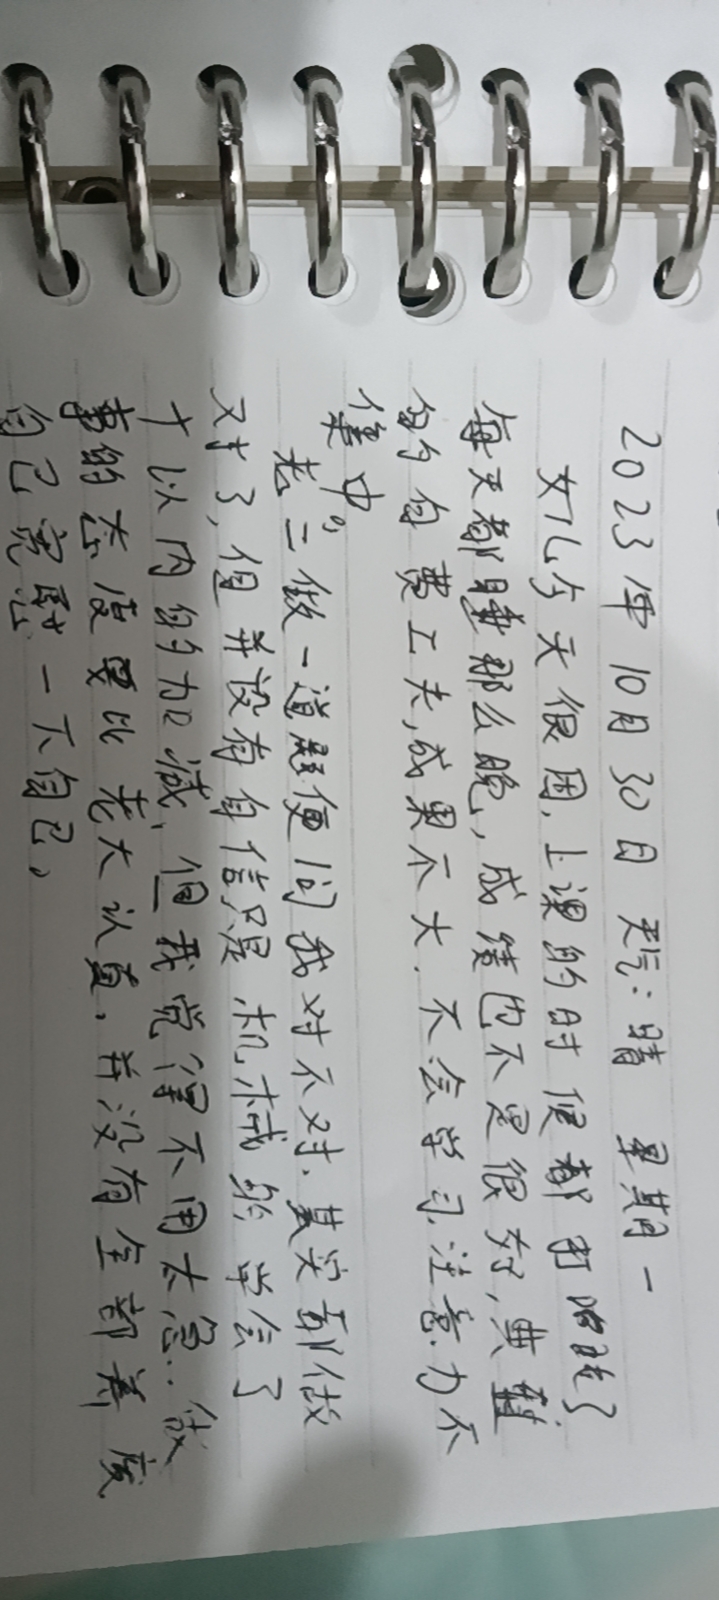 2023年10月30日 天气:晴 星期一
女儿今天很困,上课的时候都打瞌睡了
每天都睡那么晚,成绩也不是很好,典型
的白费工夫,成果不大.不会学习.注意力不
集中。
老二做一道题便问我对不对.其实都做
对了,但并没有自信只是机械的学会了
十以内的加减,但我觉得不用太急..做
事的态度要比老大认真.并没有全部
自己完 一下自己。